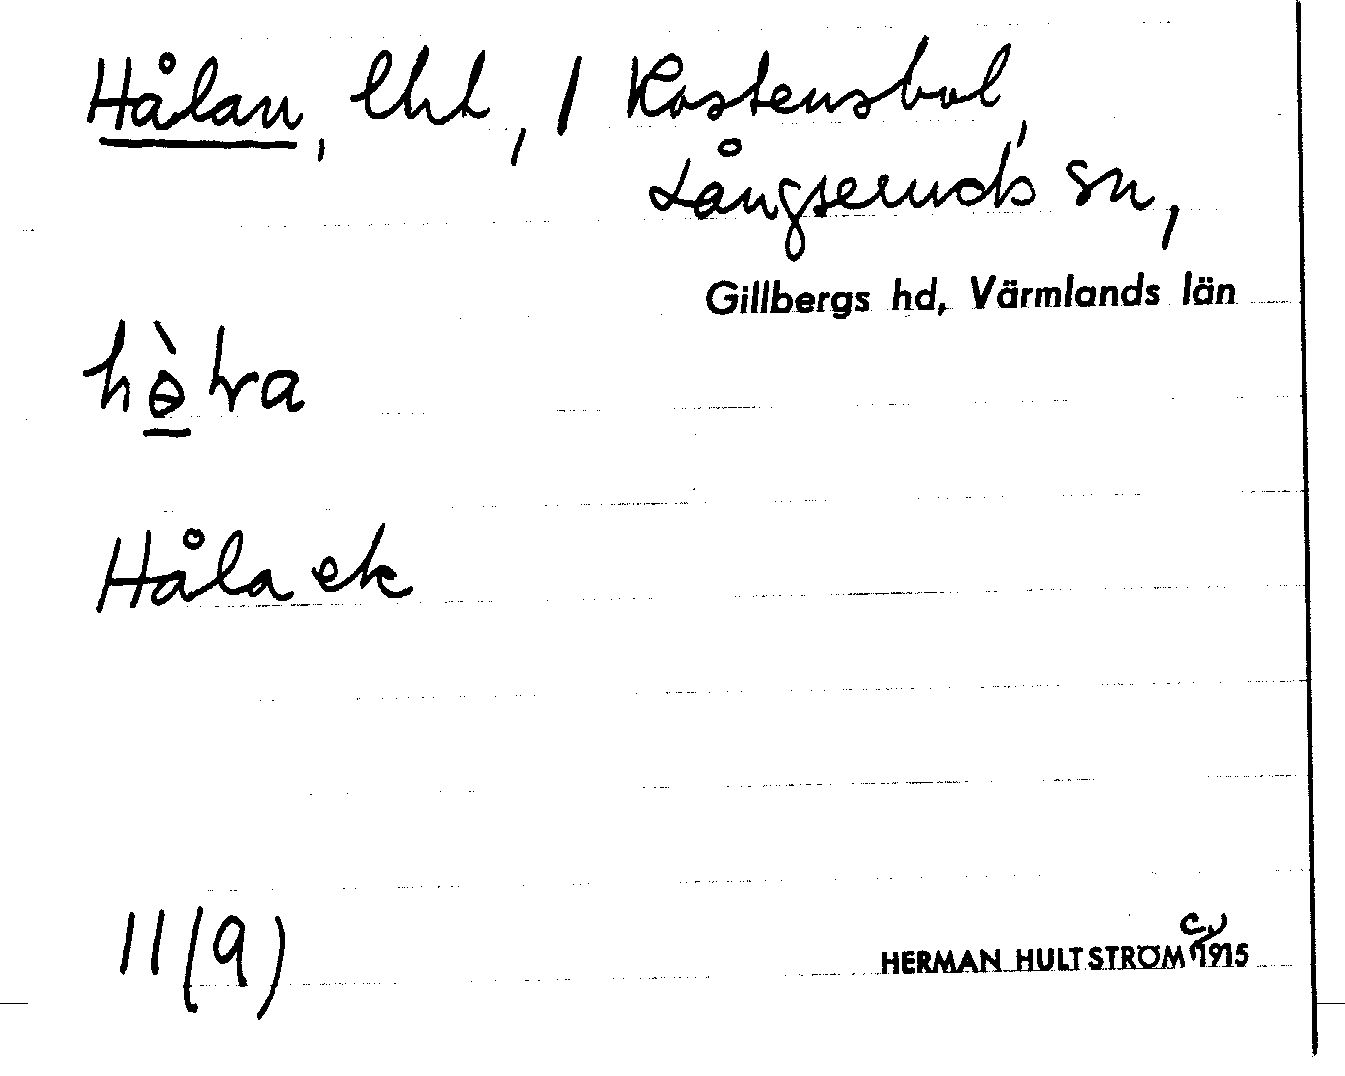 Hålan, lht, / Kostensbol,
Långseruds sn,
Gillbergs hd, Värmlands län
Håla ek
11(9)
HERMAN HULTSTRÖM c. 1915